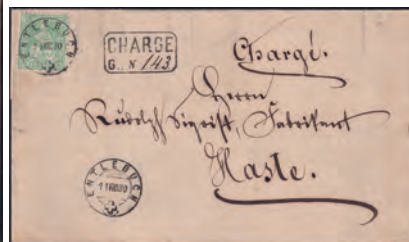 ENTLEBUCH
CHARGÉ
G.. N 143
Chargé.
Herrn
Rudolf Sigrist, Fabrikant
Hasle.
ENTLEBUCH